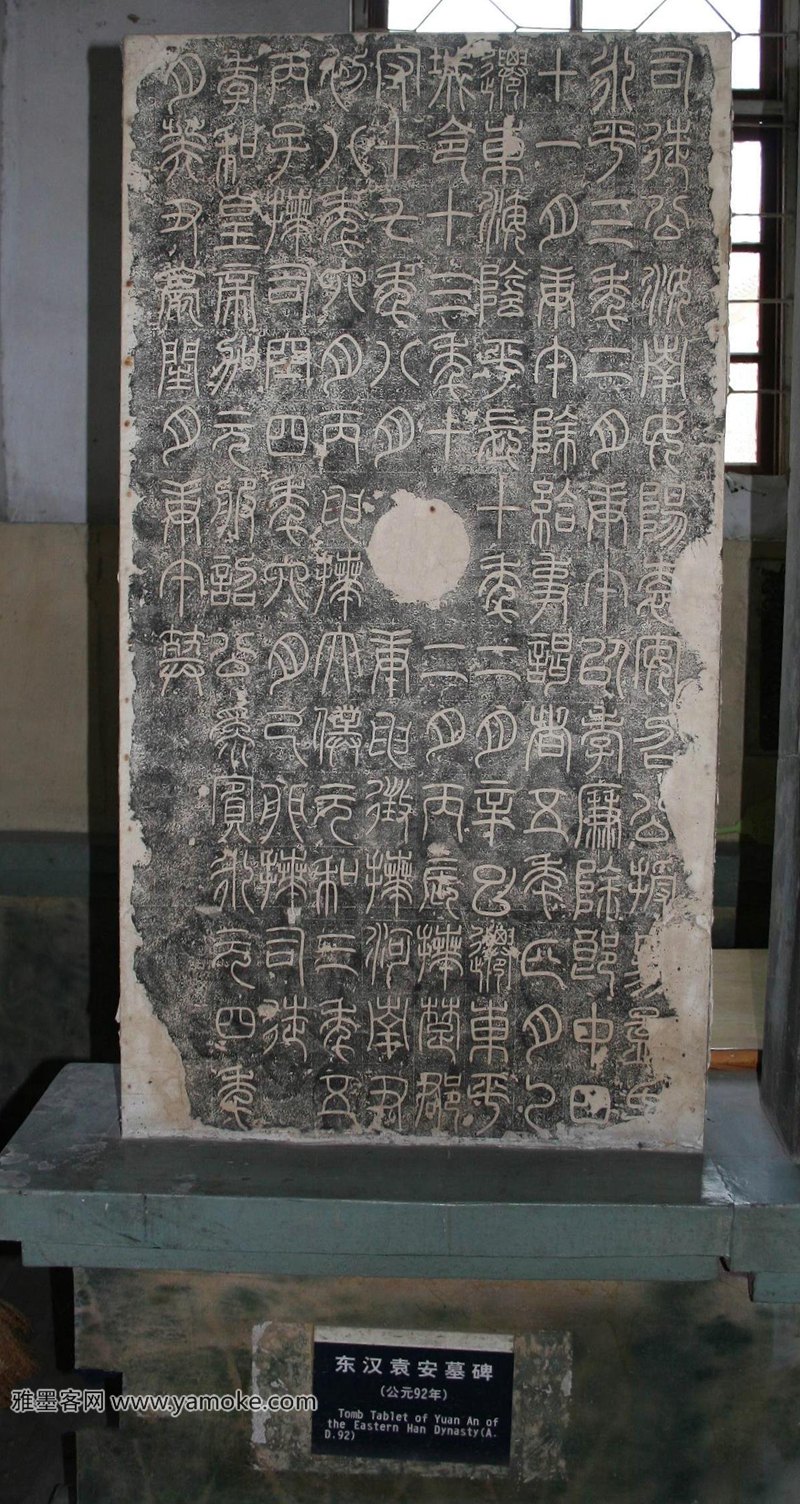 司徒公汝南女陽袁安召公授易孟氏
永平三年二月庚午以孝廉除郎中四
十一月庚午除給事謁者五年正月乙
遷東海陰平長十年二月辛巳遷東平
城令十三年十二月丙辰拜楚郡
守十七年八月庚申徵拜河南尹
初八年六月丙申拜太僕元和三年五
丙子拜司空四年六月己卯拜司徒
孝和皇帝加元服詔公為賓永元四年
月癸丑薨閏月庚午葬
东汉袁安墓碑
(公元92年)
Tomb Tablet of Yuan An of
the Eastern Han Dynasty(A.
D.92)
雅墨客网 www.yamoke.com